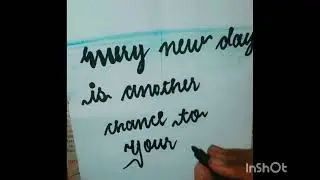 every new day
is another
chance to
your
InShOt